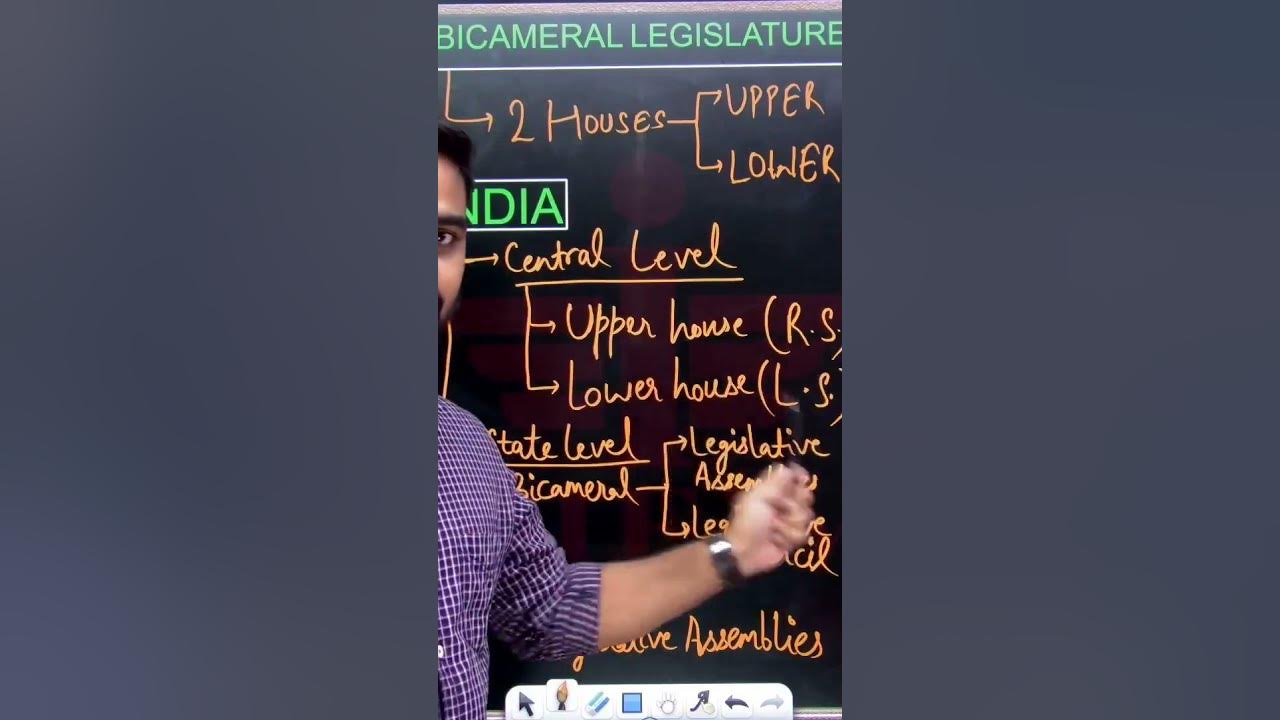 BICAMERAL LEGISLATURE
2 HOUSES
UPPER
LOWER
NDIA
Central Level
Upper house (R.S.)
Lower house (L.S.)
State level
Bicameral
Legislative
Assemblies
Legislative
Council
Assemblies